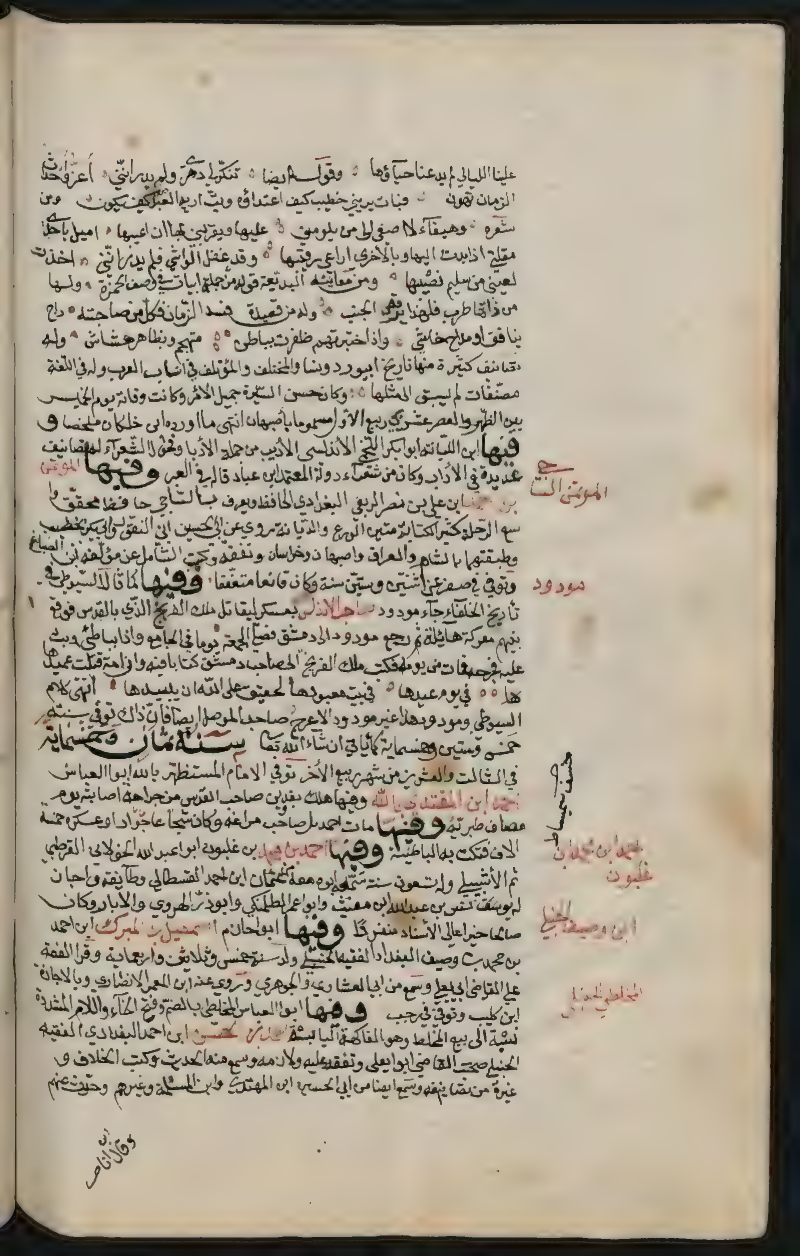 علينا الليالي لم يدعنا حياؤها وقوله ايضا تنكر لي دهري ولم يدر انني اعز واحداث
الزمان تهون فبات يريني خطب كيف اعتداؤه وبت اريه الصبر كيف يكون ومن
شعره وهيفاء لا اصغي الى من يلومني عليها ويغريني بها ان اعيبها اميل باحدى
مقلتي اذا بدت اليها وبالاخرى اراعي رقيبها وقد غفل الواشي فلم يدر انني اخذت
لعيني من سليمى نصيبها ومن معانيه البديعة قوله من جملة ابيات في وصف الخمرة ولها
من ذاتها طرب فلهذا يرقص الحبب وله من قصيدة فسد الزمان فكل من صاحبته راج
ينافق او مداج خاشي واذا اختبرتهم ظفرت بباطن متجهم وبظاهر هشاش وله
تصانيف كثيرة منها تاريخ ابيورد ونسا والمختلف والمؤتلف في انساب العرب وله في اللغة
مصنفات لم يسبق الى مثلها وكان حسن السيرة جميل الامر وكانت وفاته يوم الخميس
بين الظهر والعصر عشري ربيع الاول مسموما باصبهان انتهى ما اورده ابن خلكان ملخصا و
فيها ابن اللبانة ابو بكر اللخمي الاندلسي الاديب من جملة الادبا وفحول الشعراء له تصانيف
عديدة في الاداب وكان من شعراء دولة المعتمد ابن عباد قاله في العبر وفيها المؤتمن
بن علي بن نصر الربعي البغدادي الحافظ ويعرف بالساجي حافظ محقق وا
سع الرحلة كثير الكتابة متين الورع والديانة روى عن ابي الحسين ابن النقور وابي بكر الخطيب
وطبقتهما بالشام والعراق واصبهان وخراسان وتفقه وكتب الشامل عن مؤلفه ابن الصباغ
وتوفي في صفر عن اثنتين وستين سنة وكان قانعا متعففا وفيها كما قال السيوطي في
تاريخ الخلفاء جاء مودود بعسكر ليقاتل ملك الفرنج الذي بالقدس فوقع
بينهم معركة هائلة ثم رجع مودود الى دمشق فصلى الجمعة يوما في الجامع واذا بباطني وثب
عليه فجرحه فمات من يومه فكتب ملك الفرنج الى صاحب دمشق كتابا فيه وان امة قتلت عميد
ها في يوم عيدها في بيت معبودها لحقيق على الله ان يبيدها انتهى كلام
السيوطي ومودود هذا غير مودود الاعرج صاحب الموصل ايضا فان ذاك توفي سنة
خمس وستين وخمسماية كما ياتي ان شاء الله تعا سنة ثمان وخمسماية
في الثالث والعشرين من شهر ربيع الاخر توفي الامام المستظهر بالله ابو العباس
احمد ابن المقتدي بالله وفيها هلك بغدوين صاحب القدس من جراحة اصابته يوم
مصاف طبرية وفيها مات احمديل صاحب مراغة وكان شجاعا جوادا وعسكره خمسة
الاف فتكت به الباطنية وفيها احمد بن محمد بن غلبون ابو عبد الله الخولاني القرطبي
ثم الاشبيلي وله تسعون سنة سمعه ابوه معه من عثمان ابن احمد القسطالي وطايفة واجاز
له يونس بن عبد الله ابن مغيث وابو عمر الطلمنكي وابو ذر الهروي والكبار وكان
صالحا خيرا عالي الاسناد منفردا وفيها ابو الخازم اسمعيل بن المبرك ابن احمد
بن محمد بن وصيف البغدادي الفقيه الحنبلي ولد سنة خمس وثلاثين واربعماية وقرا الفقه
على القاضي ابي يعلى وسمع من ابي العشاري والجوهري وروى عنه ابن المعمر الانصاري وبالاجازة
ابن كليب وتوفي في رجب وفيها ابو العباس المخلطي بالضم وفتح الخاء واللام المشددة
نسبة الى بيع المخلط وهو الفاكهة اليابسة احمد بن الحسن ابن احمد البغدادي الفقيه
الحنبلي صحب القاضي ابو يعلى وتفقه عليه ولازمه وسمع منه الحديث وكتب الخلاف و
غيره من تصانيفه وسمع ايضا من ابي الحسين ابن المهتدي وابن المسلمة وغيرهم وحدث عنهم
المؤتمن الساجي
مودود
احمد ابن محمد ابن
غلبون
ابن وصيف الحنبلي
المخلطي الحنبلي
وقال ابن ناصر